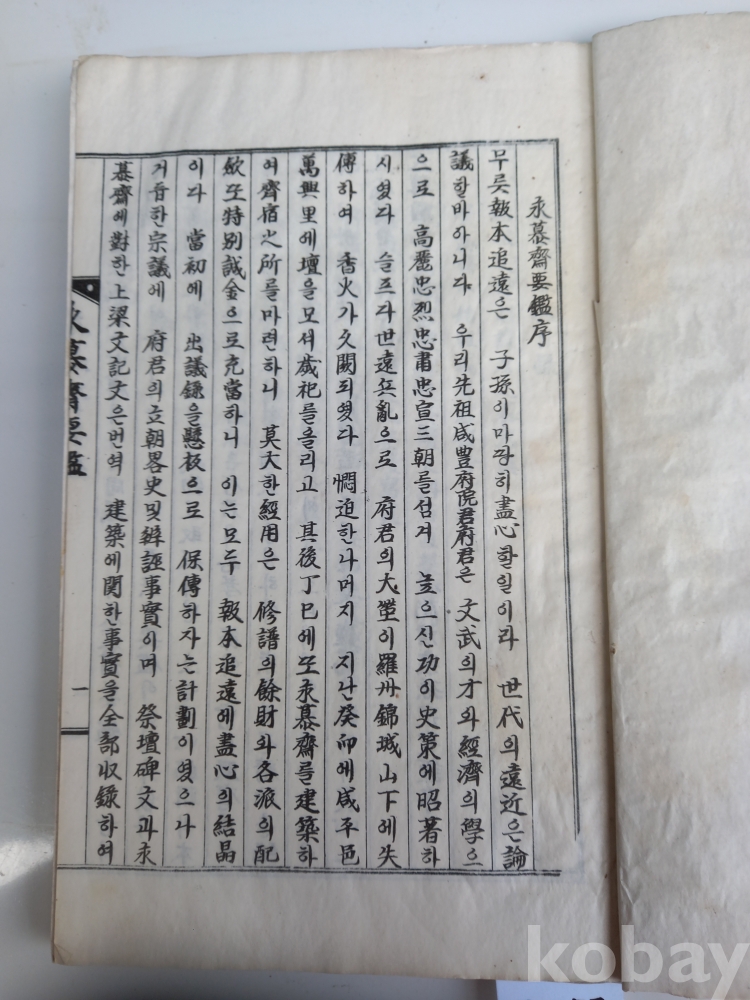 永慕齋要鑑序
무릇報本追遠은 子孫이마땅히盡心할일이라 世代의遠近은論
議할바아니다 우리先祖咸豊府院君府君은 文武의才와經濟의學으
으로 高麗忠烈忠肅忠宣三朝를섬겨 높으신功이史策에昭著하
시였다 슬프다世遠兵亂으로 府君의大塋이羅州錦城山下에失
傳하여 香火가久闕되였다 憫迫한나머지 지난癸卯에咸平邑
萬興里에壇을모셔歲祀를올리고 其後丁巳에또永慕齋를建築하
여齊宿之所를마련하니 莫大한經用은 修譜의餘財와各派의配
斂또特別誠金으로充當하니 이는모두 報本追遠에盡心의結晶
이다 當初에 出議錄을懸板으로 保傳하자는計劃이였으나
거듭한宗議에 府君의立朝畧史및辨誣事實이며 祭壇碑文과永
慕齋에對한上梁文記文은번역 建築에関한事實을全部收錄하여
永慕齋要鑑
一
kobay